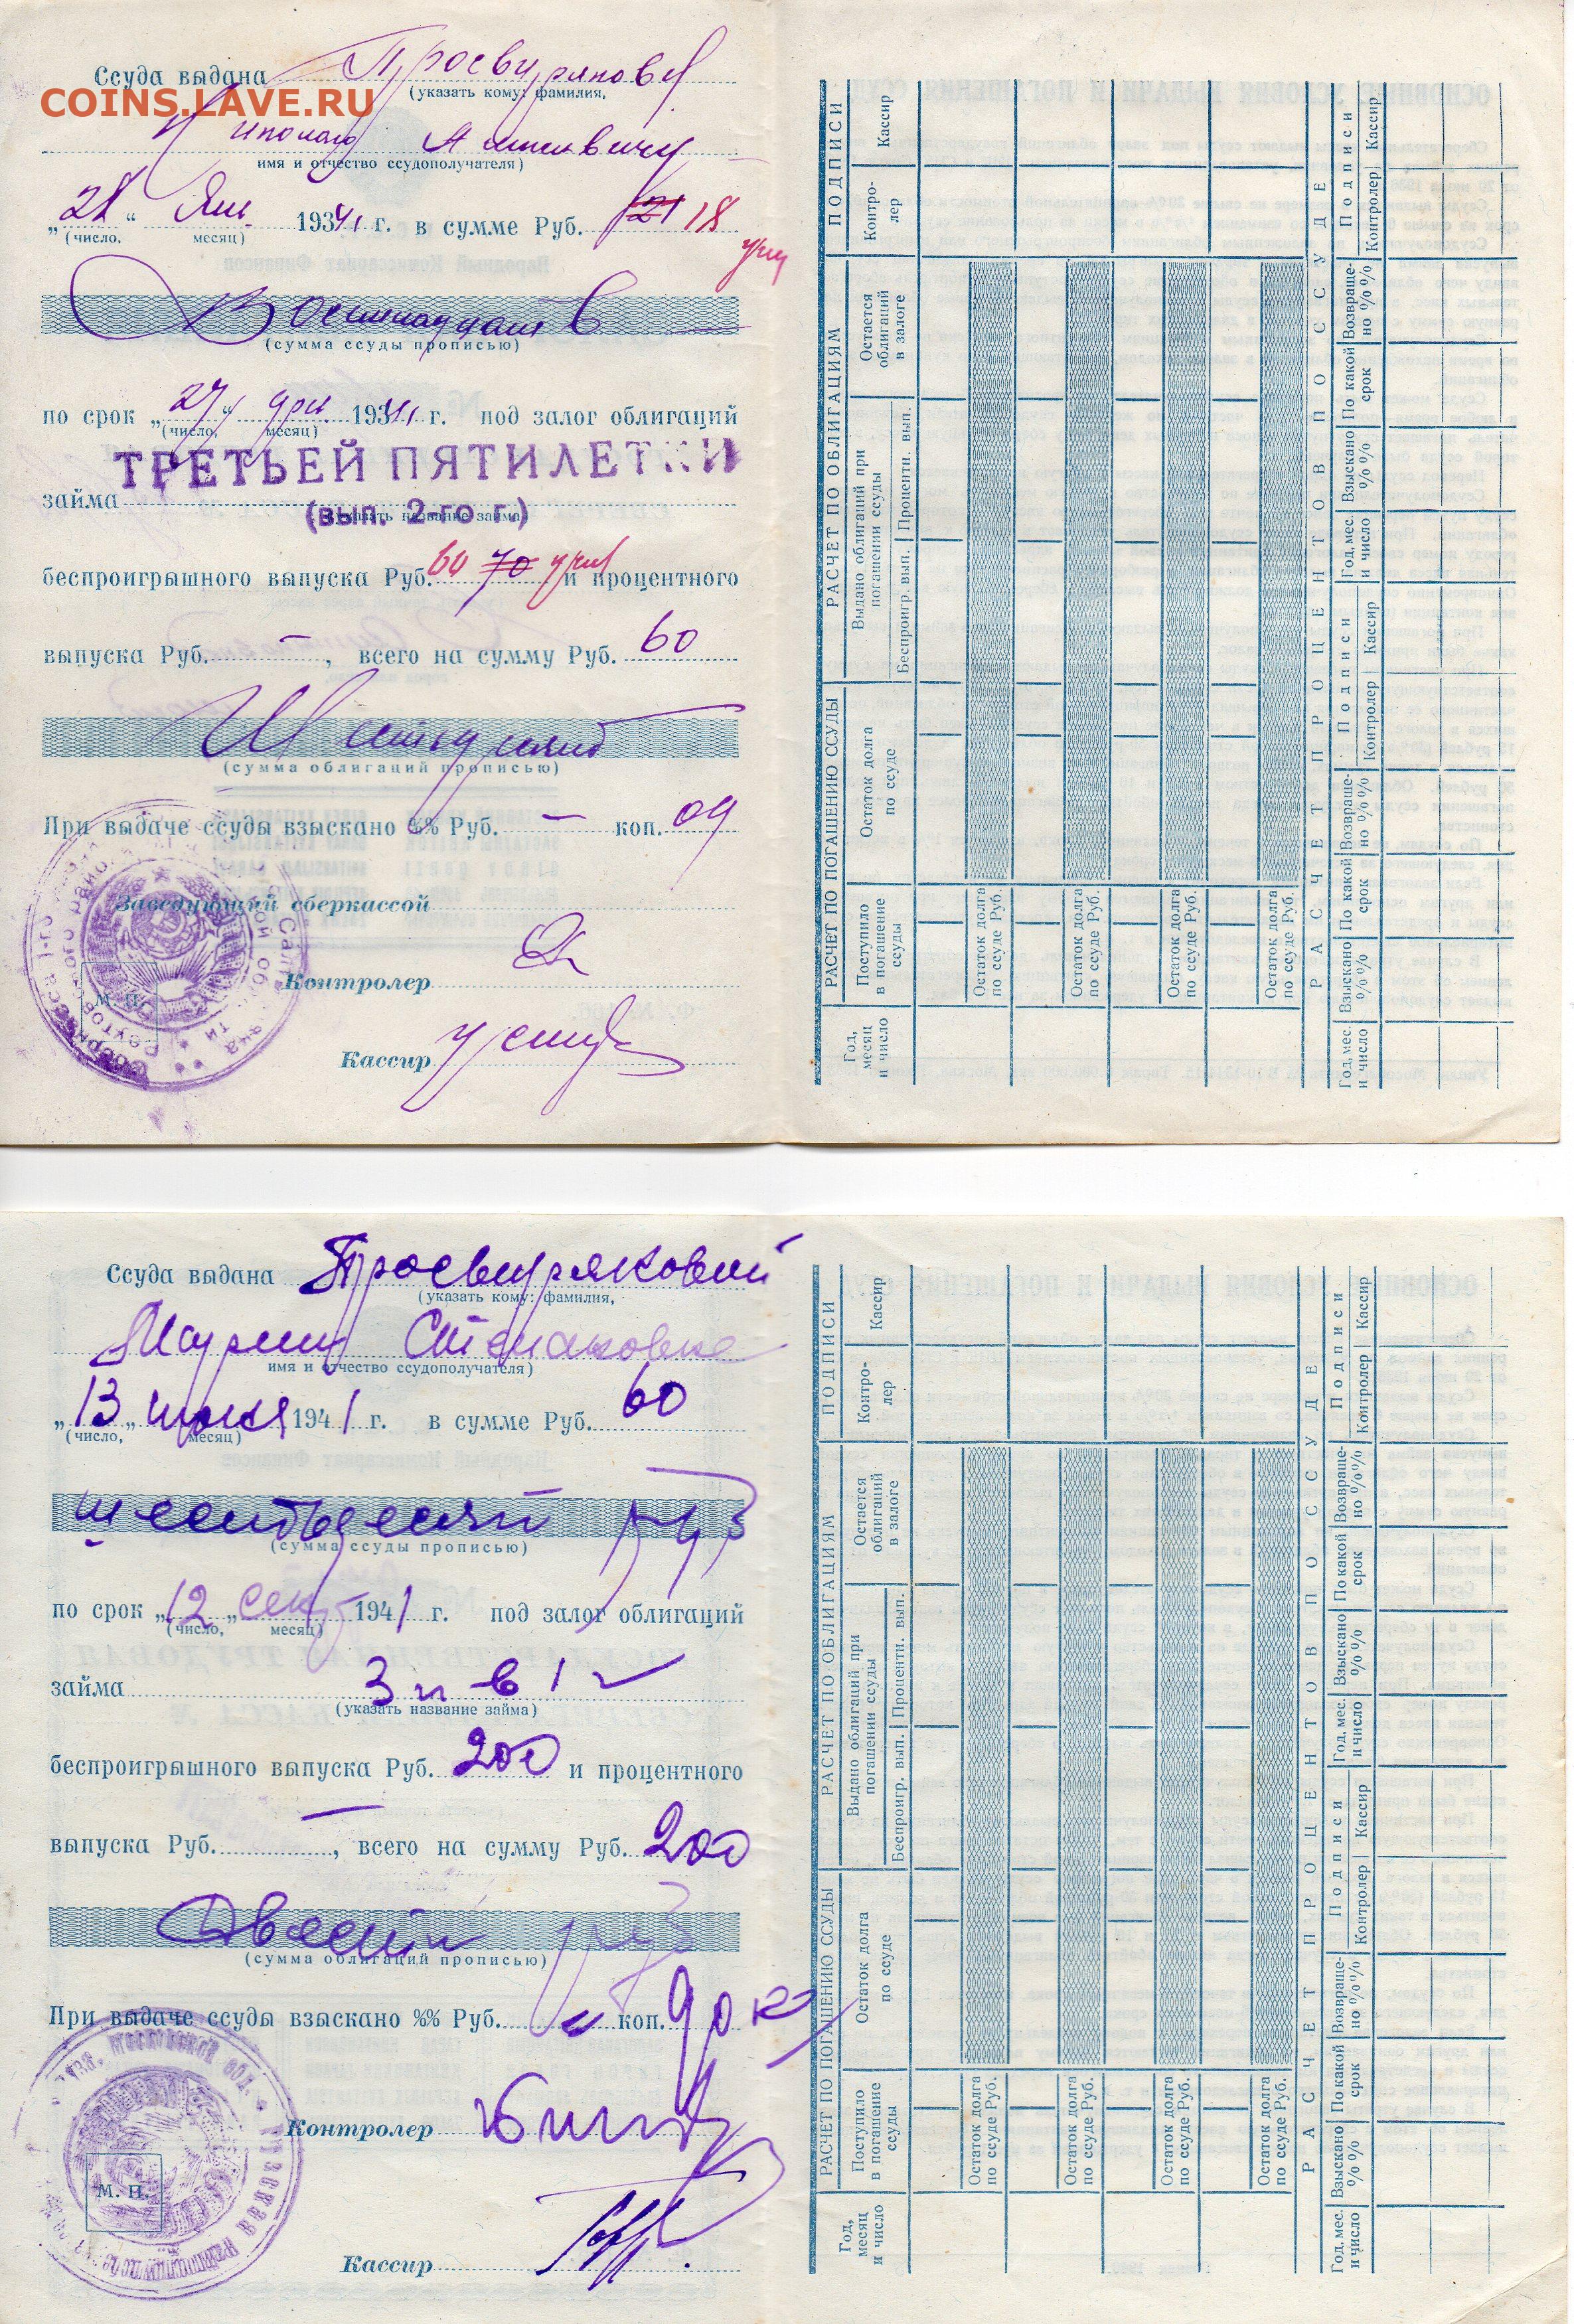 Ссуда выдана
(указать кому: фамилия,
COINS.LAVE.RU
имя и отчество ссудополучателя)
„28“ Янв. 1941 г. в сумме Руб. 21 18
(число, месяц)
Восемнадцать
(сумма ссуды прописью)
по срок „27“ 1941 г. под залог облигаций
(число, месяц)
ТРЕТЬЕЙ ПЯТИЛЕТКИ
займа
(вып. 2-го г.)
беспроигрышного выпуска Руб. 60 70 и процентного
выпуска Руб. — , всего на сумму Руб. 60
Шестьдесят
(сумма облигаций прописью)
При выдаче ссуды взыскано %% Руб. — коп. 09
Заведующий сберкассой
Контролер
М. П.
Кассир
ПОДПИСИ
Кассир
Контро-лер
РАСЧЕТ ПО ОБЛИГАЦИЯМ
Остается облигаций в залоге
Выдано облигаций при погашении ссуды
Процентн. вып.
Беспроигр. вып.
РАСЧЕТ ПО ПОГАШЕНИЮ ССУДЫ
Остаток долга по ссуде
Поступило в погашение ссуды
Год, месяц и число
Остаток долга по ссуде Руб.
Остаток долга по ссуде Руб.
Остаток долга по ссуде Руб.
Остаток долга по ссуде Руб.
РАСЧЕТ ПРОЦЕНТОВ ПО ССУДЕ
Подписи
Кассир
Контролер
Возвраще-но %%
По какой срок
Взыскано %%
Год, мес. и число
Подписи
Кассир
Контролер
Возвраще-но %%
По какой срок
Взыскано %%
Год, мес. и число
Ссуда выдана Просвиряковой
(указать кому: фамилия,
Марии Степановне
имя и отчество ссудополучателя)
„13„ июня 1941 г. в сумме Руб. 60
(число, месяц)
шестьдесят руб
(сумма ссуды прописью)
по срок „12„ сент 1941 г. под залог облигаций
(число, месяц)
займа 3 п в 1 г
(указать название займа)
беспроигрышного выпуска Руб. 200 и процентного
выпуска Руб. — , всего на сумму Руб. 200
Двести руб
(сумма облигаций прописью)
При выдаче ссуды взыскано %% Руб. коп. 90 к
Контролер
М. П.
Кассир
ПОДПИСИ
Кассир
Контро-лер
РАСЧЕТ ПО ОБЛИГАЦИЯМ
Остается облигаций в залоге
Выдано облигаций при погашении ссуды
Процентн. вып.
Беспроигр. вып.
РАСЧЕТ ПО ПОГАШЕНИЮ ССУДЫ
Остаток долга по ссуде
Поступило в погашение ссуды
Год, месяц и число
Остаток долга по ссуде Руб.
Остаток долга по ссуде Руб.
Остаток долга по ссуде Руб.
Остаток долга по ссуде Руб.
РАСЧЕТ ПРОЦЕНТОВ ПО ССУДЕ
Подписи
Кассир
Контролер
Возвраще-но %%
По какой срок
Взыскано %%
Год, мес. и число
Подписи
Кассир
Контролер
Возвраще-но %%
По какой срок
Взыскано %%
Год, мес. и число